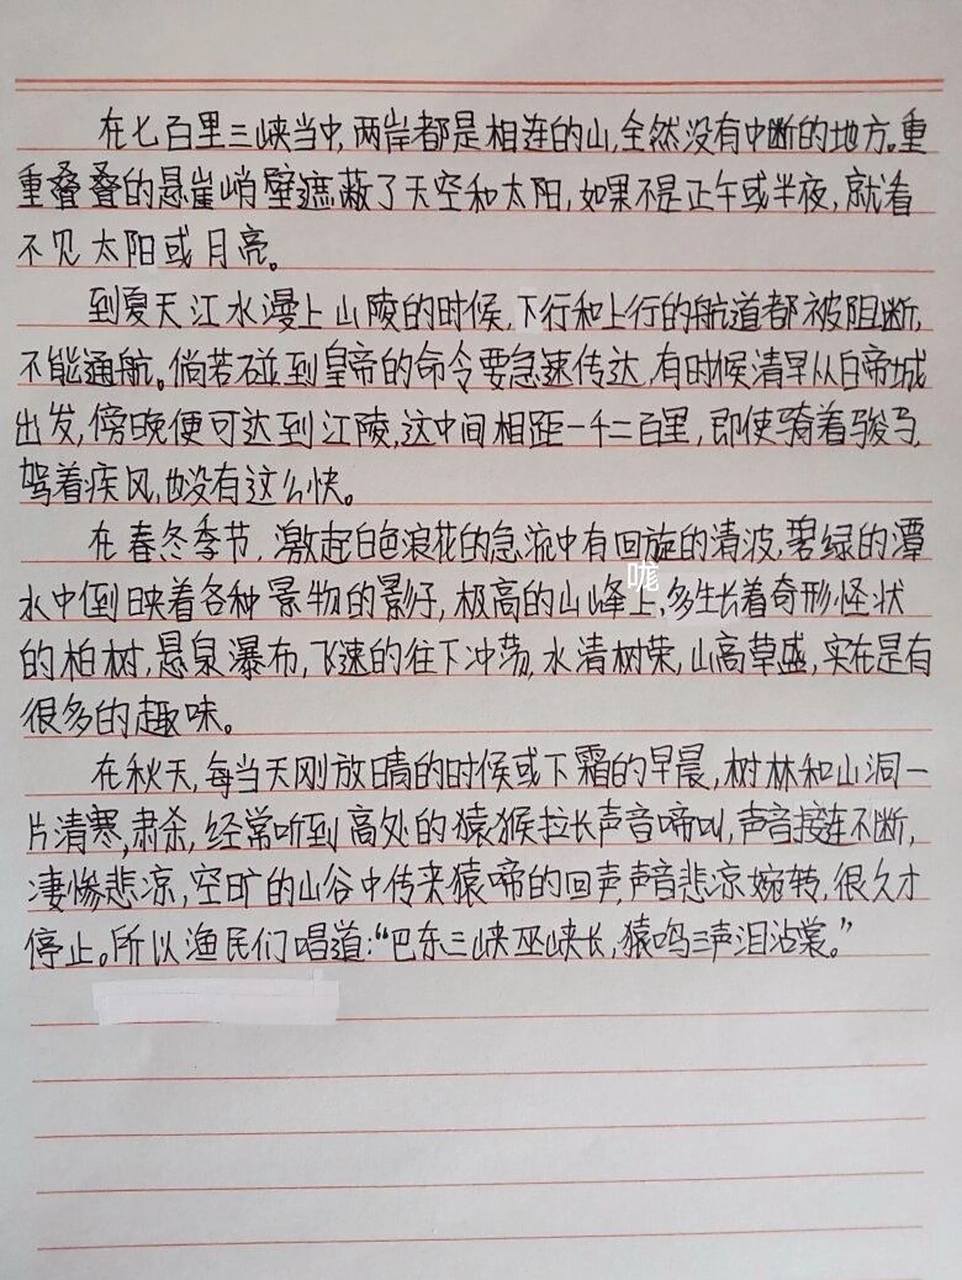 在七百里三峡当中,两岸都是相连的山,全然没有中断的地方。重
重叠叠的悬崖峭壁遮蔽了天空和太阳,如果不是正午或半夜,就看
不见太阳或月亮。
到夏天江水漫上山陵的时候,下行和上行的航道都被阻断,
不能通航。倘若碰到皇帝的命令要急速传达,有时候清早从白帝城
出发,傍晚便可达到江陵,这中间相距一千二百里,即使骑着骏马,
驾着疾风,也没有这么快。
在春冬季节,激起白色浪花的急流中有回旋的清波,碧绿的潭
咙
水中倒映着各种景物的影子,极高的山峰上,多生长着奇形怪状
的柏树,悬泉瀑布,飞速的往下冲荡,水清树荣,山高草盛,实在是有
很多的趣味。
在秋天,每当天刚放晴的时候或下霜的早晨,树林和山洞一
片清寒,肃杀,经常听到高处的猿猴拉长声音啼叫,声音接连不断,
凄惨悲凉,空旷的山谷中传来猿啼的回声,声音悲凉婉转,很久才
停止。所以渔民们唱道:“巴东三峡巫峡长,猿鸣三声泪沾裳。”